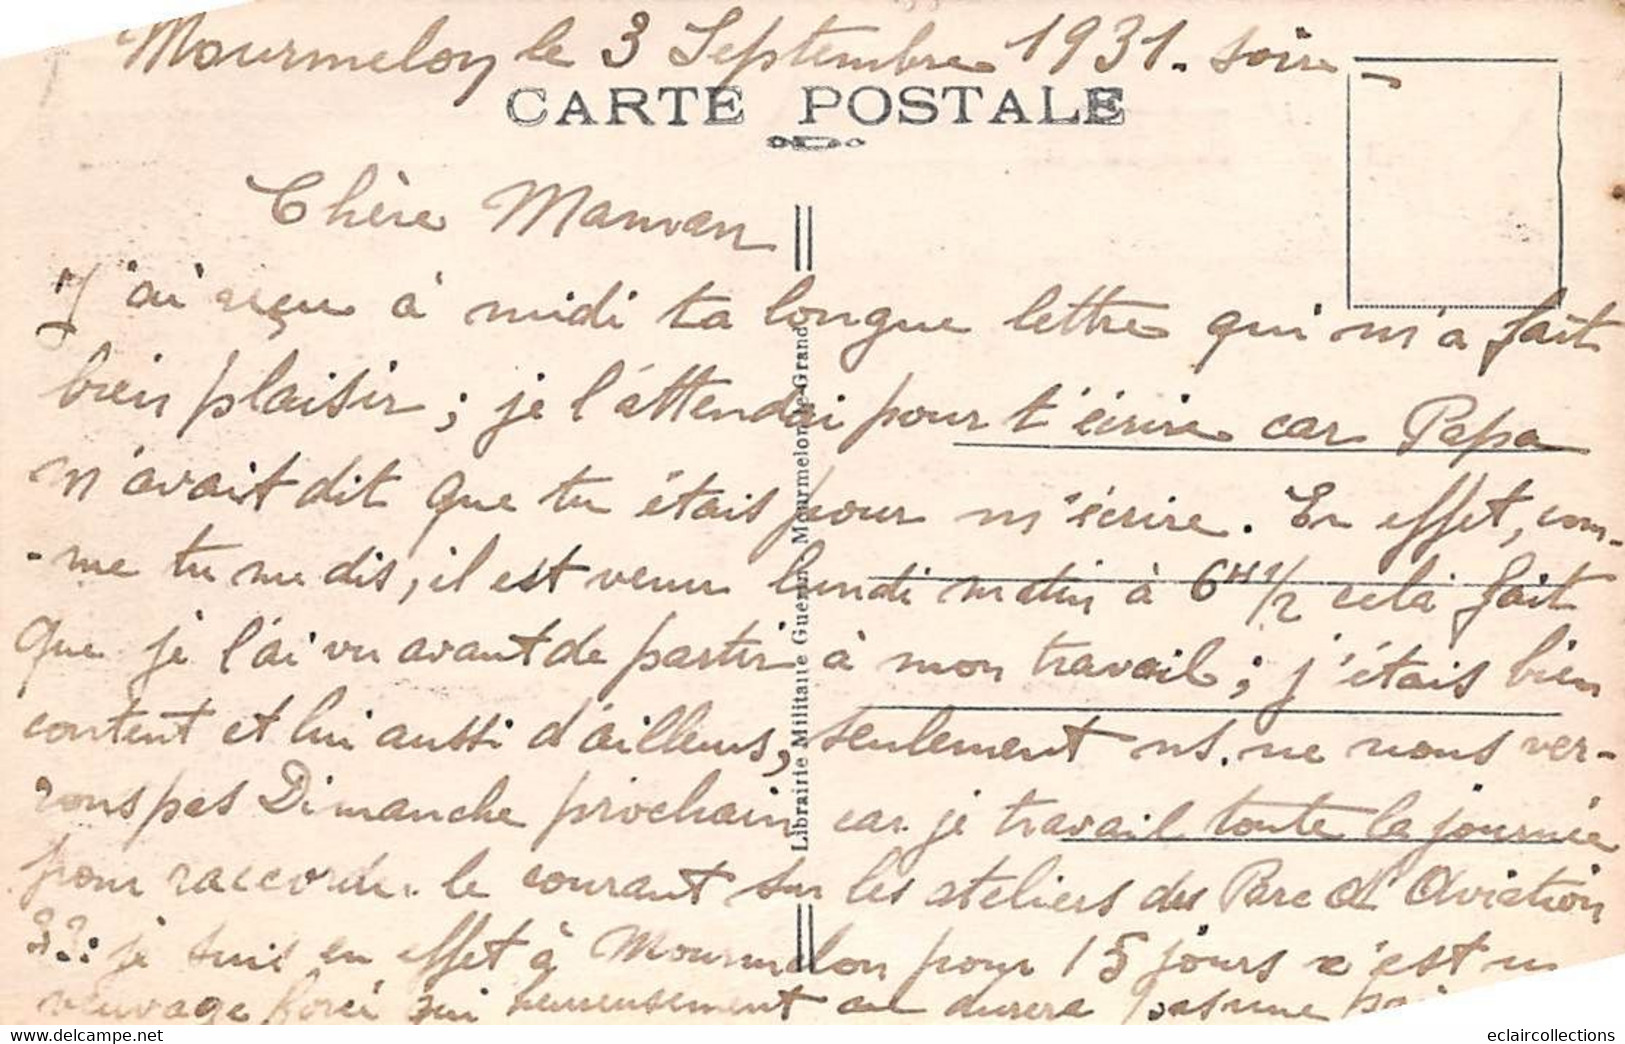 Mourmelon le 3 Septembre 1931. soir
CARTE POSTALE
Chère Maman
J'ai reçu à midi ta longue lettre qui m'a fait
bien plaisir ; je l'attendai pour t'écrire car Papa
m'avait dit que tu étais pour m'écrire. En effet, com-
-me tu me dis, il est venu lundi matin à 6H 1/2 cela fait
que je l'ai vu avant de partir à mon travail ; j'étais bien
content et lui aussi d'ailleurs, seulement ns. ne nous ver-
rons pas Dimanche prochain car je travail toute la journée
pour raccorder le courant sur les ateliers du Parc d'Aviation
33: je suis en effet à Mourmelon pour 15 jours c'est un
veuvage forcé qui heureusement ne durera pas une
Librairie Militaire Guérin - Mourmelon-le-Grand
eclaircollections